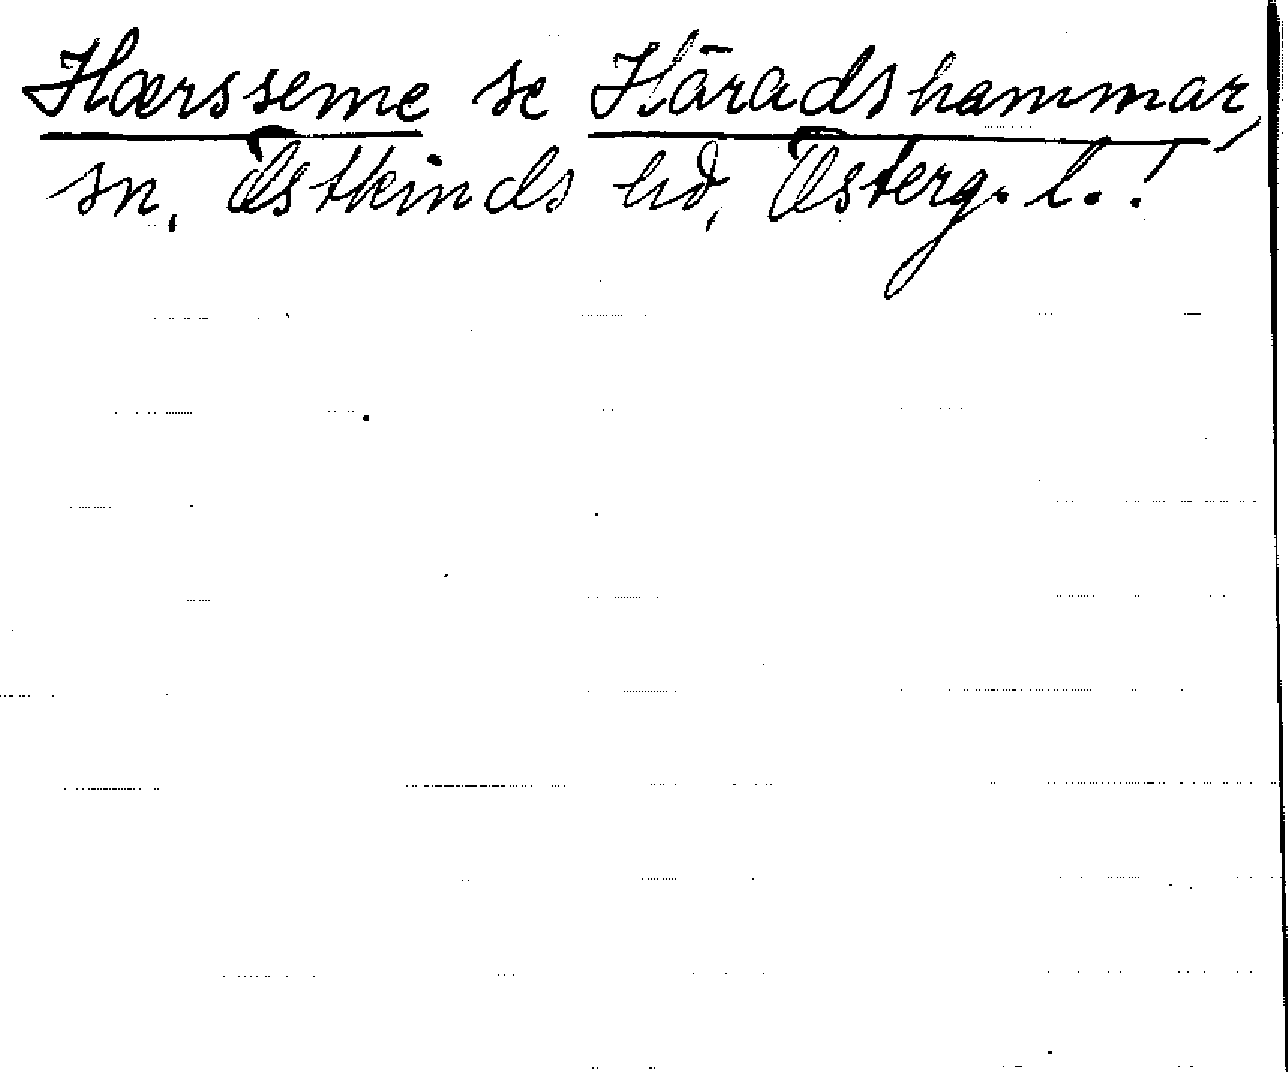 Hærsseme se Häradshammar,
sn, Östkinds hd, Österg. l.!